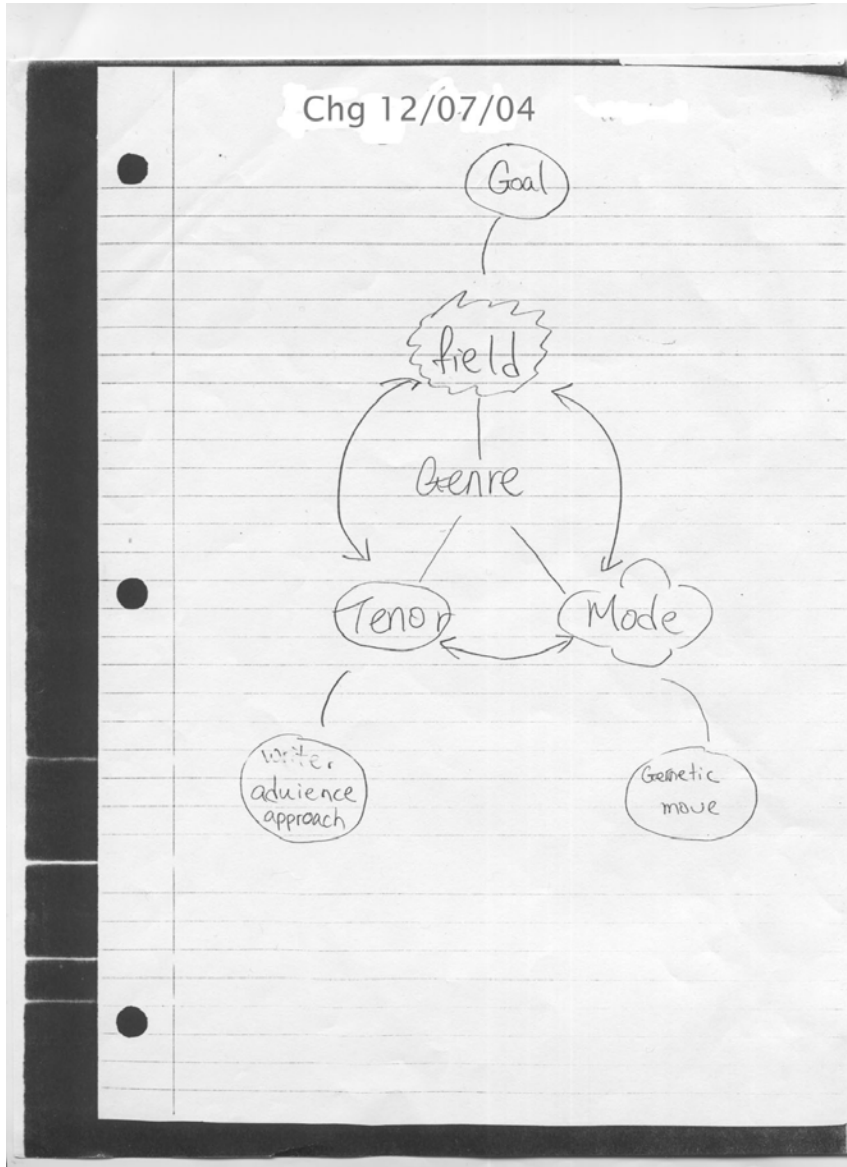 Chg 12/07/04
Goal
field
Genre
Tenor
Mode
Writer
aduience
approach
Genetic
move